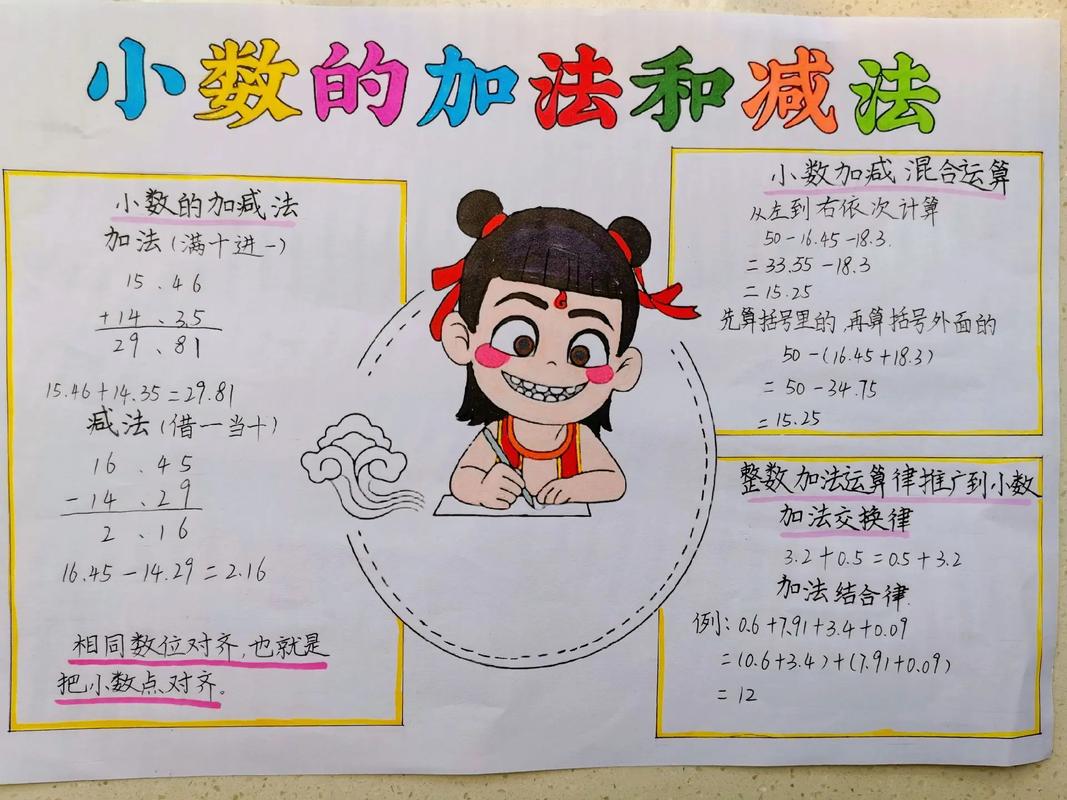 小数的加法和减法
小数的加减法
加法(满十进一)
15.46
+14.35
29.81
15.46+14.35=29.81
减法(借一当十)
16.45
-14.29
2.16
16.45-14.29=2.16
相同数位对齐,也就是
把小数点对齐。
小数加减混合运算
从左到右依次计算
50-16.45-18.3.
=33.55-18.3
=15.25
先算括号里的,再算括号外面的
50-(16.45+18.3)
=50-34.75
=15.25
整数加法运算律推广到小数
加法交换律
3.2+0.5=0.5+3.2
加法结合律.
例:0.6+7.91+3.4+0.09
=(0.6+3.4)+(7.91+0.09)
=12